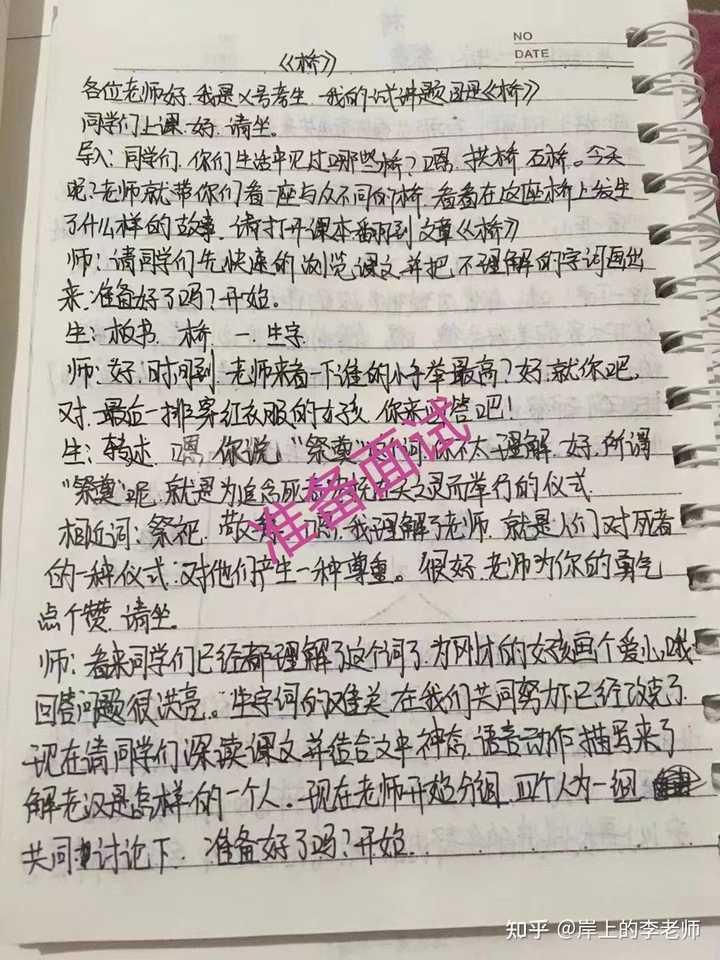 NO
DATE
《桥》
各位老师好.我是X号考生.我的试讲题目是《桥》
同学们上课.好.请坐。
导入:同学们.你们生活中见过哪些桥?嗯.拱桥.石桥。今天
呢?老师就带你们看一座与众不同的桥.看看在这座桥上发生
了什么样的故事.请打开课本翻到文章《桥》
师:请同学们先快速的浏览课文并把不理解的字词画出
来.准备好了吗?开始。
生:板书.桥.一.生字
师:好.时间到.老师来看一下谁的小手举最高?好.就你吧.
对.最后一排穿红衣服的女孩.你来回答吧!
生:转述.嗯.你说."祭奠"这个词你不太理解.好.所谓
"祭奠"呢.就是为追念死者 而举行的仪式
相近词:祭祀. 嗯.我理解了老师.就是人们对死者
的一种仪式.对他们产生一种尊重。很好.老师为你的勇气
点个赞.请坐。
师:看来同学们已经都理解了这个词了.为刚才的女孩画个爱心哦
回答问题很洪亮。生字词的难关在我们共同努力下已经攻克了.
现在请同学们深读课文并结合文中神态.语言动作描写来了
解老汉是怎样的一个人。现在老师开始分组.四个人为一组
共同讨论下.准备好了吗?开始.
准备面试
知乎 @岸上的李老师